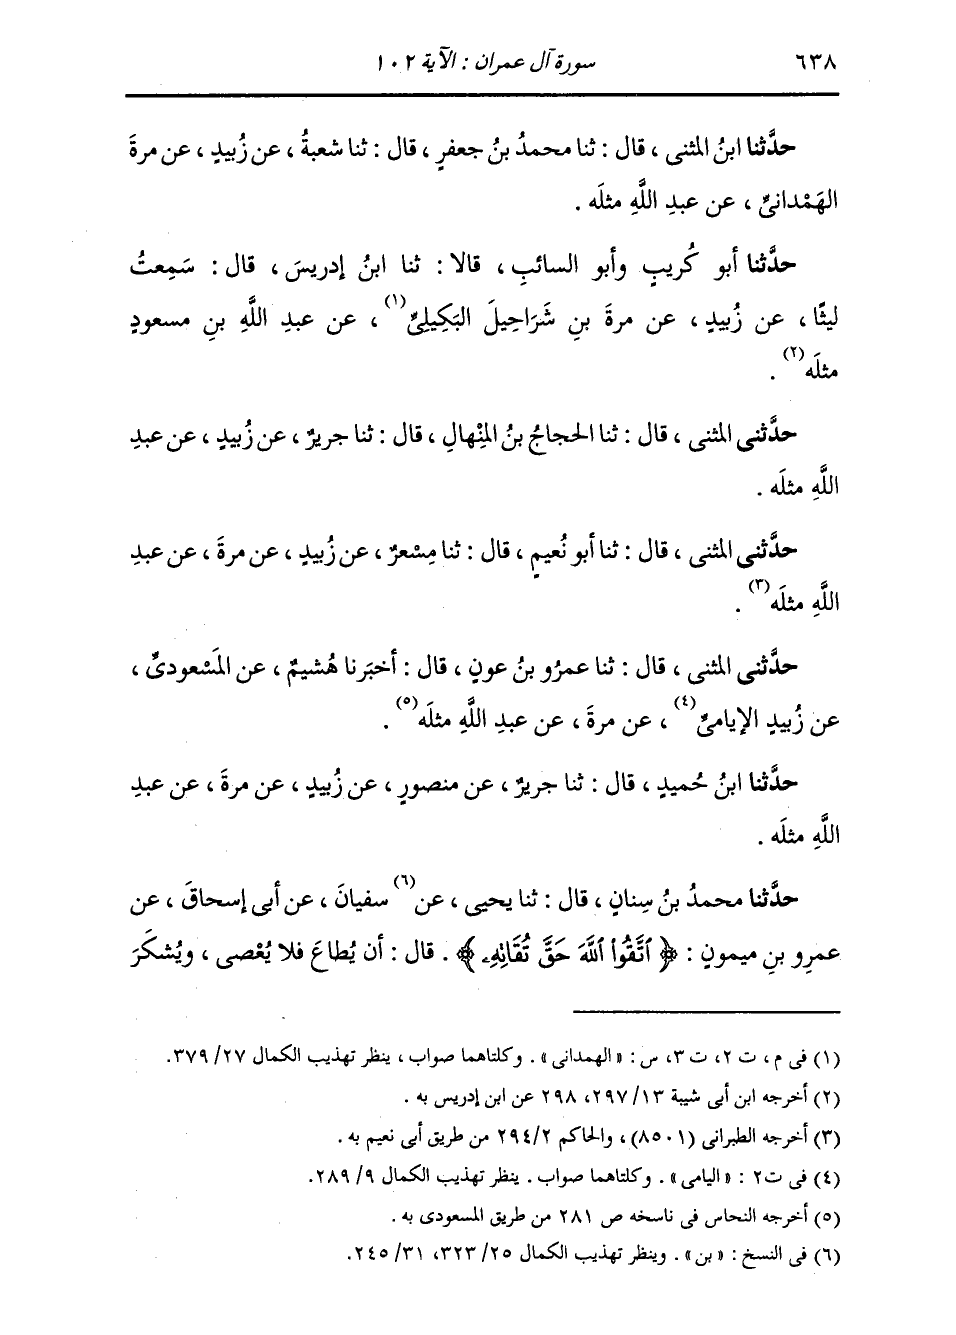 ٦٣٨ سورة آل عمران : الآية ١٠٢
حدَّثنا ابنُ المثنى ، قال : ثنا محمدُ بنُ جعفرٍ ، قال : ثنا شعبةُ ، عن زُبيدٍ ، عن مرةَ
الهَمْدانىِّ ، عن عبدِ اللَّهِ مثلَه .
حدَّثنا أبو كُريبٍ وأبو السائبِ ، قالا : ثنا ابنُ إدريسَ ، قال : سَمِعتُ
ليثًا ، عن زُبيدٍ ، عن مرةَ بنِ شَرَاحِيلَ البَكِيلِىِّ (١) ، عن عبدِ اللَّهِ بنِ مسعودٍ
مثلَه (٢) .
حدَّثنى المثنى ، قال : ثنا الحجاجُ بنُ المِنْهالِ ، قال : ثنا جريرٌ ، عن زُبيدٍ ، عن عبدِ
اللَّهِ مثلَه .
حدَّثنى المثنى ، قال : ثنا أبو نُعيمٍ ، قال : ثنا مِسْعرٌ ، عن زُبيدٍ ، عن مرةَ ، عن عبدِ
اللَّهِ مثلَه (٣) .
حدَّثنى المثنى ، قال : ثنا عمرُو بنُ عونٍ ، قال : أخبَرنا هُشيمٌ ، عن المَسْعودىِّ ،
عن زُبيدٍ الإيامىِّ (٤) ، عن مرةَ ، عن عبدِ اللَّهِ مثلَه (٥) .
حدَّثنا ابنُ حُميدٍ ، قال : ثنا جريرٌ ، عن منصورٍ ، عن زُبيدٍ ، عن مرةَ ، عن عبدِ
اللَّهِ مثلَه .
حدَّثنا محمدُ بنُ سِنانٍ ، قال : ثنا يحيى ، عن (٦) سفيانَ ، عن أبى إسحاقَ ، عن
عمرِو بنِ ميمونٍ : ﴿ ٱتَّقُوا۟ ٱللَّهَ حَقَّ تُقَاتِهِۦ ﴾ . قال : أن يُطاعَ فلا يُعْصى ، ويُشكَرَ
(١) فى م ، ت ٢، ت ٣، س : « الهمدانى » . وكلتاهما صواب ، ينظر تهذيب الكمال ٢٧/ ٣٧٩.
(٢) أخرجه ابن أبى شيبة ١٣/ ٢٩٧، ٢٩٨ عن ابن إدريس به .
(٣) أخرجه الطبرانى (٨٥٠١)، والحاكم ٢/ ٢٩٤ من طريق أبى نعيم به .
(٤) فى ت٢ : « اليامى » . وكلتاهما صواب . ينظر تهذيب الكمال ٩/ ٢٨٩.
(٥) أخرجه النحاس فى ناسخه ص ٢٨١ من طريق المسعودى به .
(٦) فى النسخ : « بن » . وينظر تهذيب الكمال ٢٥/ ٣٢٣، ٣١/ ٢٤٥.